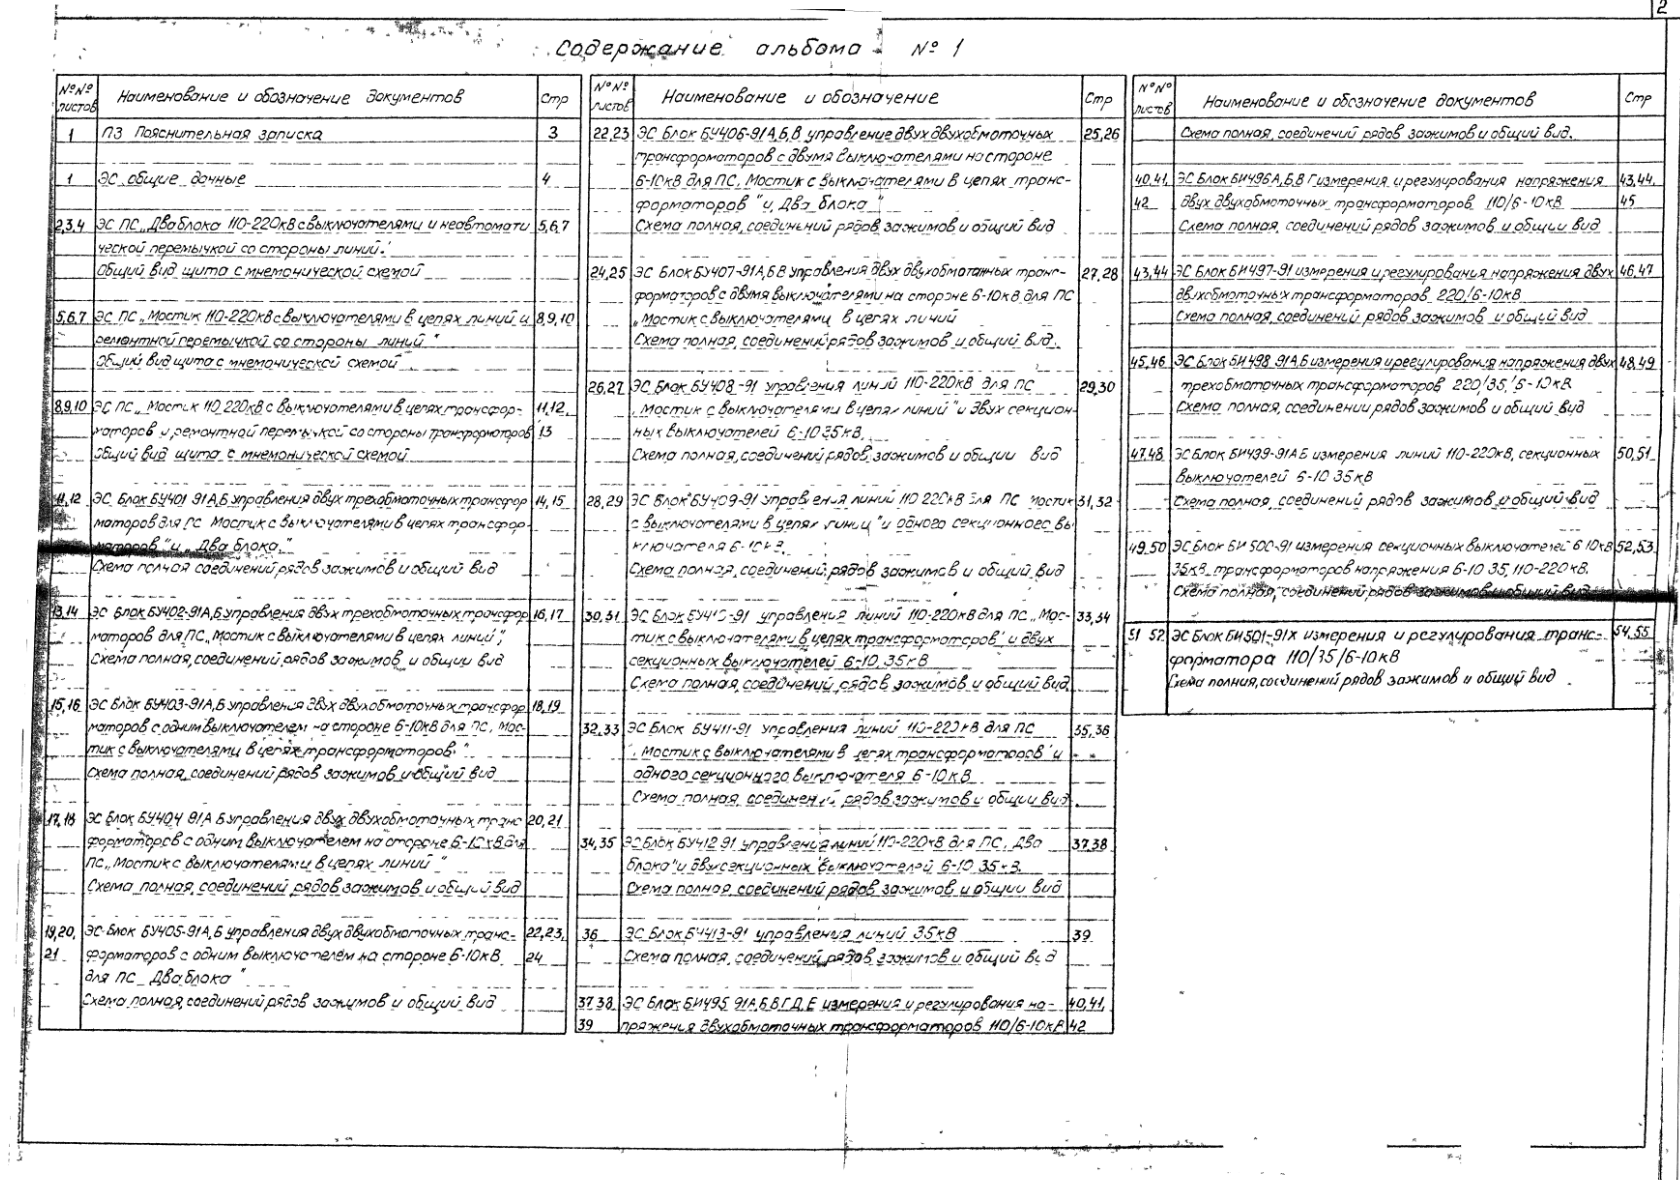 2
Содержание альбома № 1
№№ листов
Наименование и обозначение документов
Стр
1 ПЗ Пояснительная записка 3
1 ЭС общие данные 4
2,3,4 ЭС ПС „Два блока 110-220кВ с выключателями и неавтомати 5,6,7
ческой перемычкой со стороны линий."
Общий вид щита с мнемонической схемой
5,6,7 ЭС ПС „Мостик 110-220кВ с выключателями в цепях линий и 8,9,10
ремонтной перемычкой со стороны линий"
Общий вид щита с мнемонической схемой
8,9,10 ЭС ПС „Мостик 110 220кВ с выключателями в цепях трансфор- 11,12,
маторов и ремонтной перемычкой со стороны трансформаторов 13
Общий вид щита с мнемонической схемой
11,12 ЭС Блок БУ401 91А,Б управления двух трехобмоточных трансфор 14,15
маторов для ПС Мостик с выключателями в цепях трансфор-
маторов "и „Два блока."
Схема полная соединений рядов зажимов и общий вид
13,14 ЭС Блок БУ402-91А,Б управления двух трехобмоточных трансфор 16,17
маторов для ПС „Мостик с выключателями в цепях линий",
Схема полная, соединений рядов зажимов и общий вид
15,16 ЭС Блок БУ403-91А,Б управления двух двухобмоточных трансфор 18,19
маторов с одним выключателем на стороне 6-10кВ для ПС, Мос-
тик с выключателями в цепях трансформаторов."
Схема полная, соединений рядов зажимов и общий вид
17,18 ЭС Блок БУ404 91А Б управления двух двухобмоточных транс 20,21
форматоров с одним выключателем на стороне 6-10кВ для
ПС „Мостик с выключателями в цепях линий"
Схема полная, соединений рядов зажимов и общий вид
19,20, ЭС Блок БУ405-91А,Б управления двух двухобмоточных транс- 22,23,
21 форматоров с одним выключателем на стороне 6-10кВ 24
для ПС Два блока"
Схема полная, соединений рядов зажимов и общий вид
№№ листов
Наименование и обозначение
Стр
22,23 ЭС Блок БУ406-91А,Б,В управление двух двухобмоточных 25,26
трансформаторов с двумя выключателями на стороне
6-10кВ для ПС, Мостик с выключателями в цепях транс-
форматоров "и „Два блока"
Схема полная, соединений рядов зажимов и общий вид
24,25 ЭС Блок БУ407-91А,Б В управления двух двухобмоточных транс- 27,28
форматоров с двумя выключателями на стороне 6-10кВ для ПС
„Мостик с выключателями в цепях линий
Схема полная, соединений рядов зажимов и общий вид.
26,27 ЭС Блок БУ408-91 управления линий 110-220кВ для ПС 29,30
„Мостик с выключателями в цепях линий "и двух секцион-
ных выключателей 6-10 35кВ.
Схема полная, соединений рядов, зажимов и общии вид
28,29 ЭС Блок БУ409-91 управления линий 110 220кВ для ПС Мостик 31,32
с выключателями в цепях линии "и одного секционного вы
ключателя 6-10кВ.
Схема полная, соединений, рядов зажимов и общий вид
30,31 ЭС Блок БУ410-91 управления линий 110-220кВ для ПС „Мос- 33,34
тик с выключателями в цепях трансформаторов" и двух
секционных выключателей 6-10, 35кВ
Схема полная, соединений, рядов зажимов и общий вид
32,33 ЭС Блок БУ411-91 управления линий 110-220кВ для ПС 35,36
„Мостик с выключателями в цепях трансформаторов" и
одного секционного выключателя 6-10кВ
Схема полная, соединений рядов зажимов и общии вид
34,35 ЭС Блок БУ412 91 управления линий 110-220кВ для ПС, Два 37,38
блока "и двух секционных выключателей 6-10 35кВ.
Схема полная, соединений рядов зажимов и общии вид
36 ЭС Блок БУ413-91 управления линий 35кВ 39
Схема полная, соединений рядов зажимов и общий вид
37,38, ЭС Блок БИ495 91А,Б,В,Г,Д,Е измерения и регулирования на- 40,41,
39 пряжения двухобмоточных трансформаторов 110/6-10кВ 42
№№ листов
Наименование и обозначение документов
Стр
Схема полная, соединений рядов зажимов и общий вид.
40,41, ЭС Блок БИ496А,Б,В Г измерения и регулирования напряжения 43,44,
42 двух двухобмоточных трансформаторов 110/6-10кВ 45
Схема полная, соединений рядов зажимов и общии вид
43,44 ЭС Блок БИ497-91 измерения и регулирования напряжения двух 46,47
двухобмоточных трансформаторов 220/6-10кВ
Схема полная, соединений рядов зажимов и общий вид
45,46 ЭС Блок БИ498 91А,Б измерения и регулирования напряжения двух 48,49
трехобмоточных трансформаторов 220/35/6-10кВ
Схема полная, соединении рядов зажимов и общий вид
47,48 ЭС Блок БИ439-91А Б измерения линий 110-220кВ, секционных 50,51
выключателей 6-10 35кВ
Схема полная, соединений рядов зажимов и общий вид
49,50 ЭС Блок БИ 500-91 измерения секционных выключателей 6 10кВ 52,53
35кВ, трансформаторов напряжения 6-10 35, 110-220кВ.
Схема полная, соединений рядов зажимов и общий вид
51 52 ЭС Блок БИ501-91х измерения и регулирования транс- 54,55
форматора 110/35/6-10кВ
Схема полная, соединений рядов зажимов и общий вид